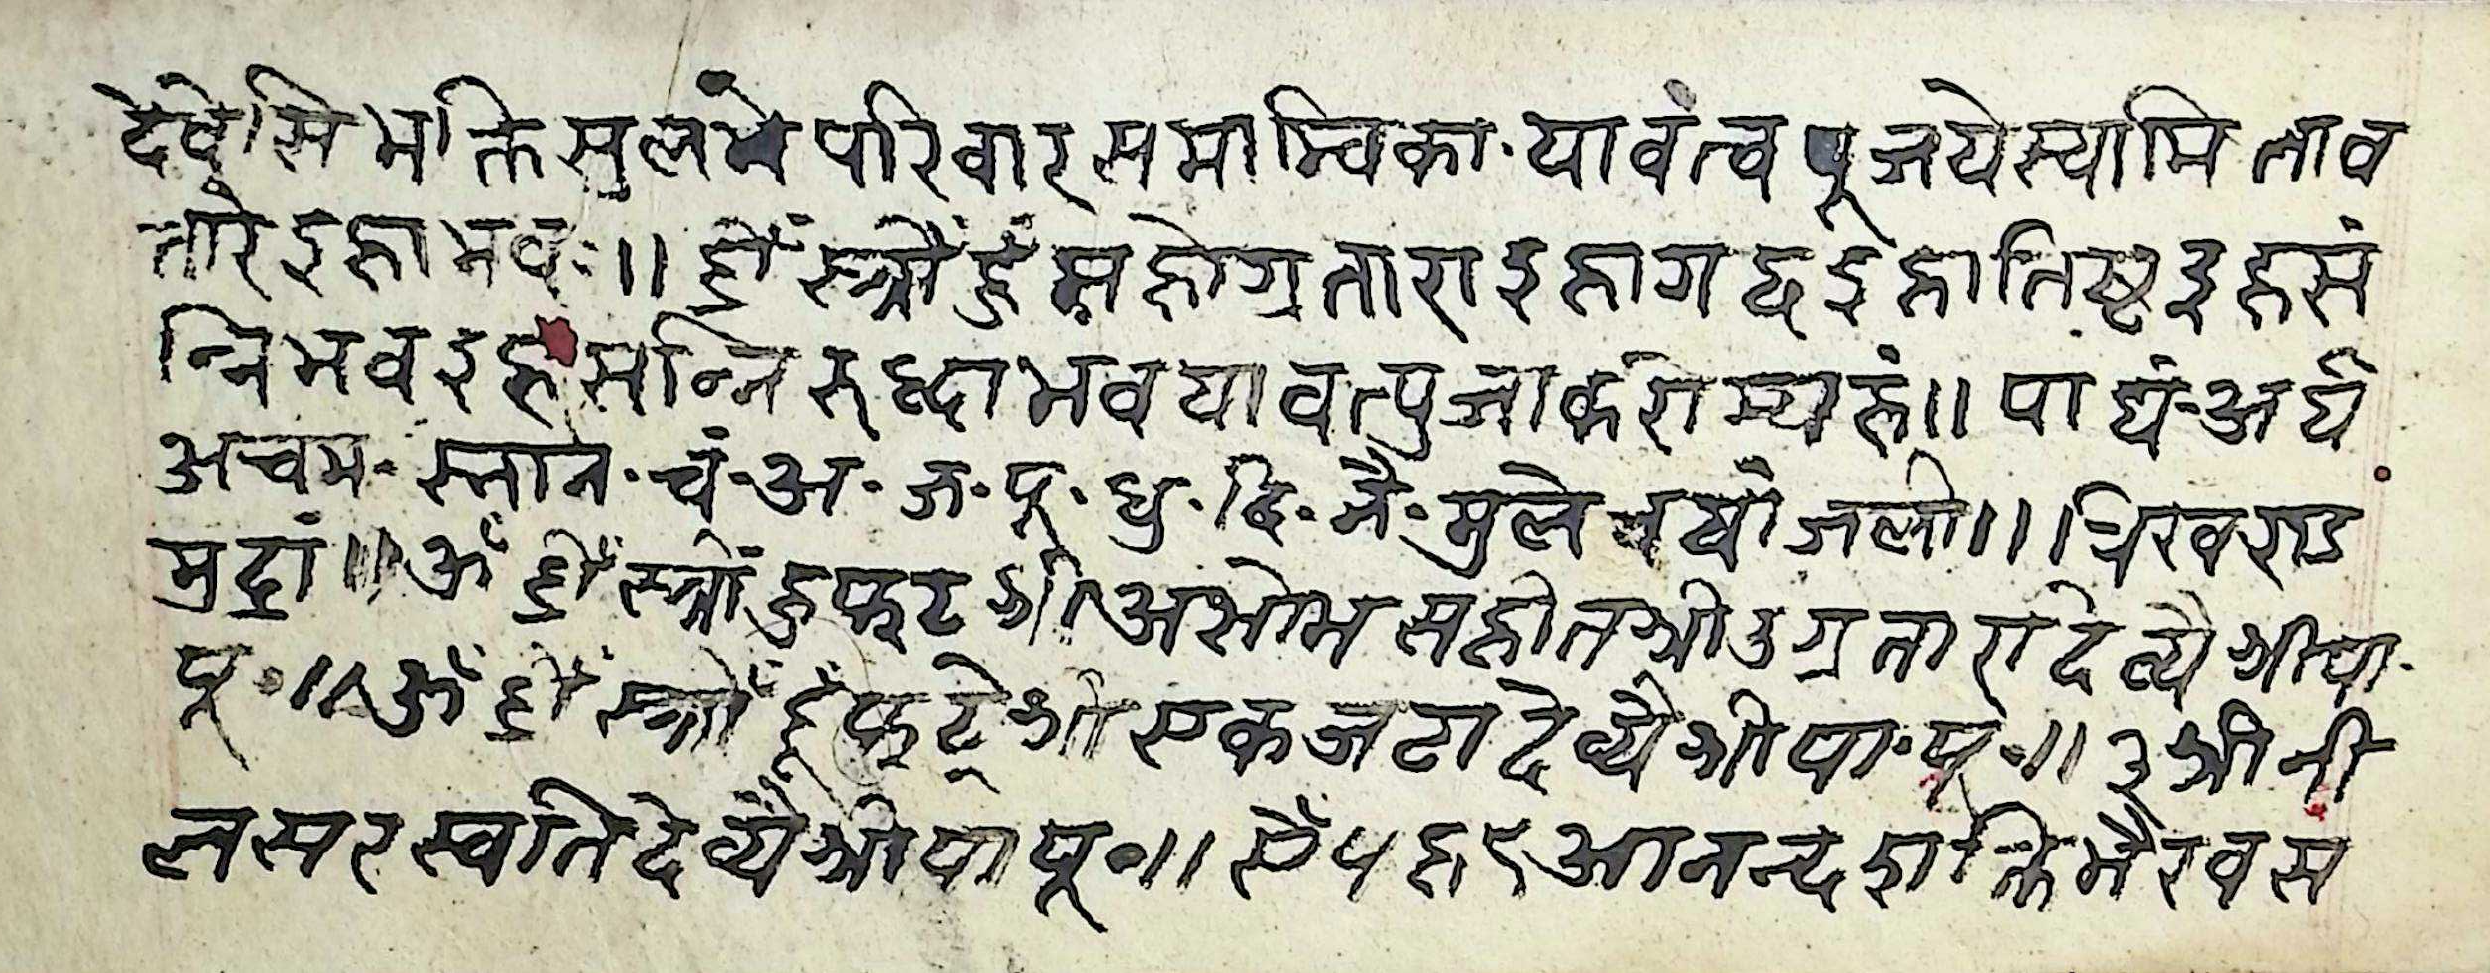 देवेसि भक्ति सुलभे परिवार समान्विका· यावंत्व पूजयेस्यामि ताव
तारे इहा भव ः॥ ह्रीँ स्त्रीँ हुँ महोग्र तारा इहा गछ इहा तिष्ठ इह सं
न्नि भव इह सन्नि रुद्धा भव यावत्पुजा करोम्यहं॥ पाद्यं·अर्घ
अचम· स्नान· चं·अ·ज·पू·धु·दि·नै·मुले जली॥। खण्ड
मुद्रां॥ ॐ ह्रीँ स्त्रीँ हु फट श्री अक्षोभ सहीत श्री उग्र तारा देव्यै श्री पा·
पू॰॥ ॐ ह्रीँ स्त्रीँ हूँ फट् श्री एकजटा देव्यै श्री पा·पू॰॥ ३ श्री नी
ल सरस्वति देव्यै श्री पा पू॰॥ ऐँ ५ ह ९ आनन्द शक्ति भैरव स